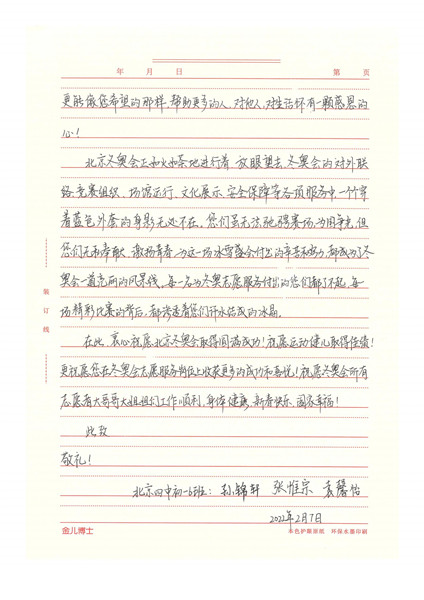 年 月 日 第 页
更能像您希望的那样，帮助更多的人，对他人、对生活怀有一颗感恩的
心！
北京冬奥会正如火如荼地进行着，放眼望去，冬奥会的对外联
络、竞赛组织、场馆运行、文化展示、安全保障等各项服务中一个个穿
着蓝色外套的身影无处不在。您们虽无法驰骋赛场，为国争光，但
您们无私奉献、激扬青春，为这一场冰雪盛会付出的辛苦和努力，都成为了冬
奥会一道亮丽的风景线。每一名为冬奥志愿服务付出的您们都了不起，每一
场精彩比赛的背后，都渗透着您们汗水结成的冰晶。
在此，衷心祝愿北京冬奥会取得圆满成功！祝愿运动健儿取得佳绩！
更祝愿您在冬奥会志愿服务岗位上收获更多的成功和喜悦！祝愿冬奥会所有
志愿者大哥哥大姐姐们工作顺利，身体健康，新春快乐，阖家幸福！
此致
敬礼！
北京四中初一6班：孙锦轩 张惟宗 袁馨怡
2022年2月7日
装 订 线
金儿博士 米色护眼原纸 环保水墨印刷